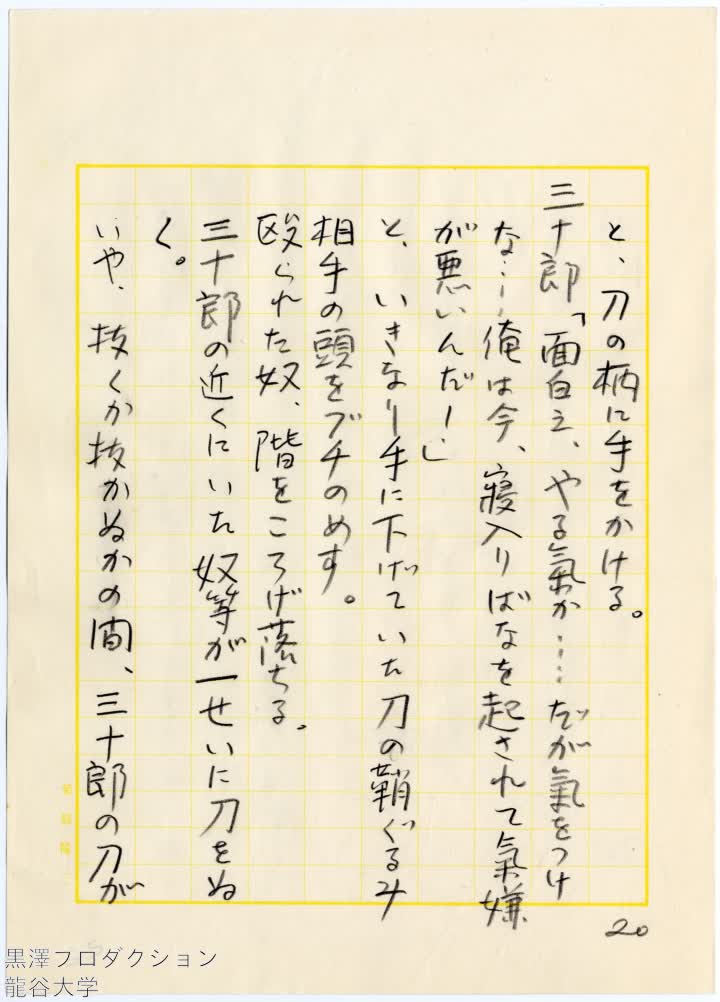 と、刀の柄に手をかける。
三十郎「面白え、やる氣か……だが氣をつけ
な……俺は今、寝入りばなを起されて氣嫌
が悪いんだ！」
と、いきなり手に下げていた刀の鞘ぐるみ
相手の頭をブチのめす。
殴られた奴、階をころげ落ちる。
三十郎の近くにいた奴等が一せいに刀をぬ
く。
いや、抜くか抜かぬかの間、三十郎の刀が
20
黒澤プロダクション
龍谷大学